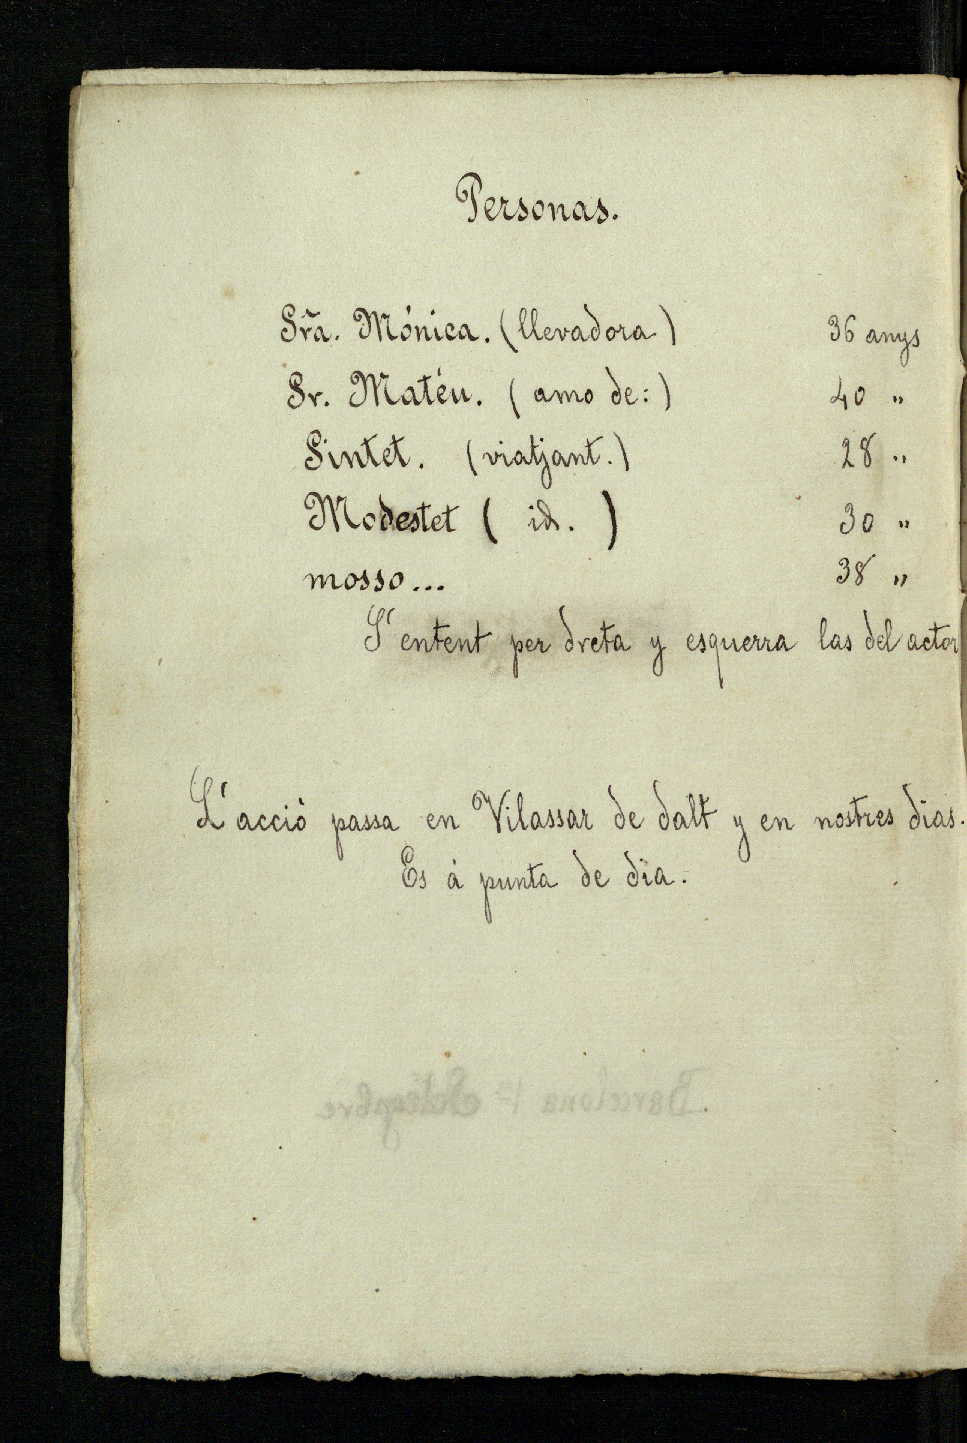 Personas.
Sr̃a. Mónica. (llevadora) 36 anys
Sr. Matéu. (amo de:) 40 "
Sintet. (viatjant.) 28 "
Modestet ( id. ) 30 "
mosso... 38 "
S'entent per dreta y esquerra las del actor
L'acció passa en Vilassar de dalt y en nostres dias.
Es á punta de dia.